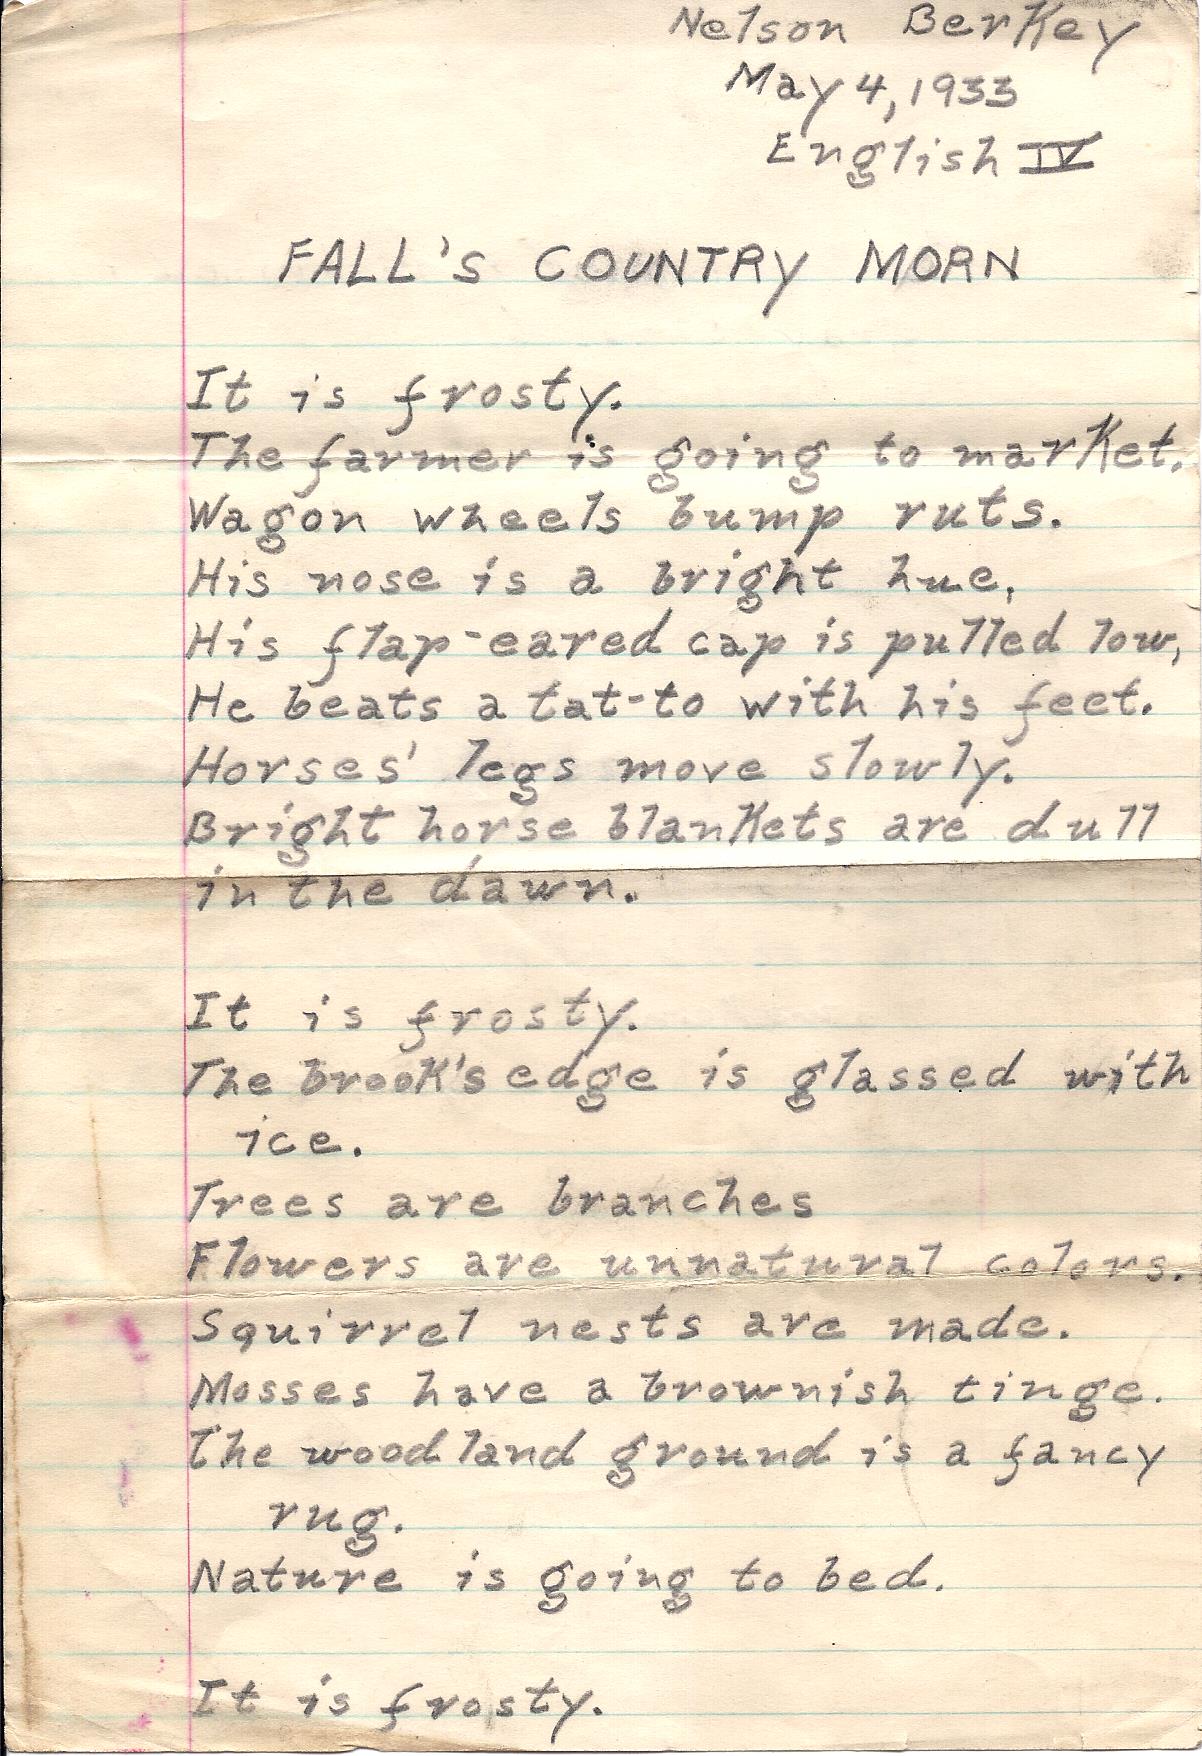 Nelson Berkey
May 4, 1933
English IV
FALL'S COUNTRY MORN
It is frosty.
The farmer is going to market.
Wagon wheels bump ruts.
His nose is a bright hue,
His flap-eared cap is pulled low,
He beats a tat-to with his feet.
Horses' legs move slowly.
Bright horse blankets are dull
in the dawn.
It is frosty.
The brook's edge is glassed with
ice.
Trees are branches
Flowers are unnatural colors.
Squirrel nests are made.
Mosses have a brownish tinge.
The woodland ground is a fancy
rug.
Nature is going to bed.
It is frosty.